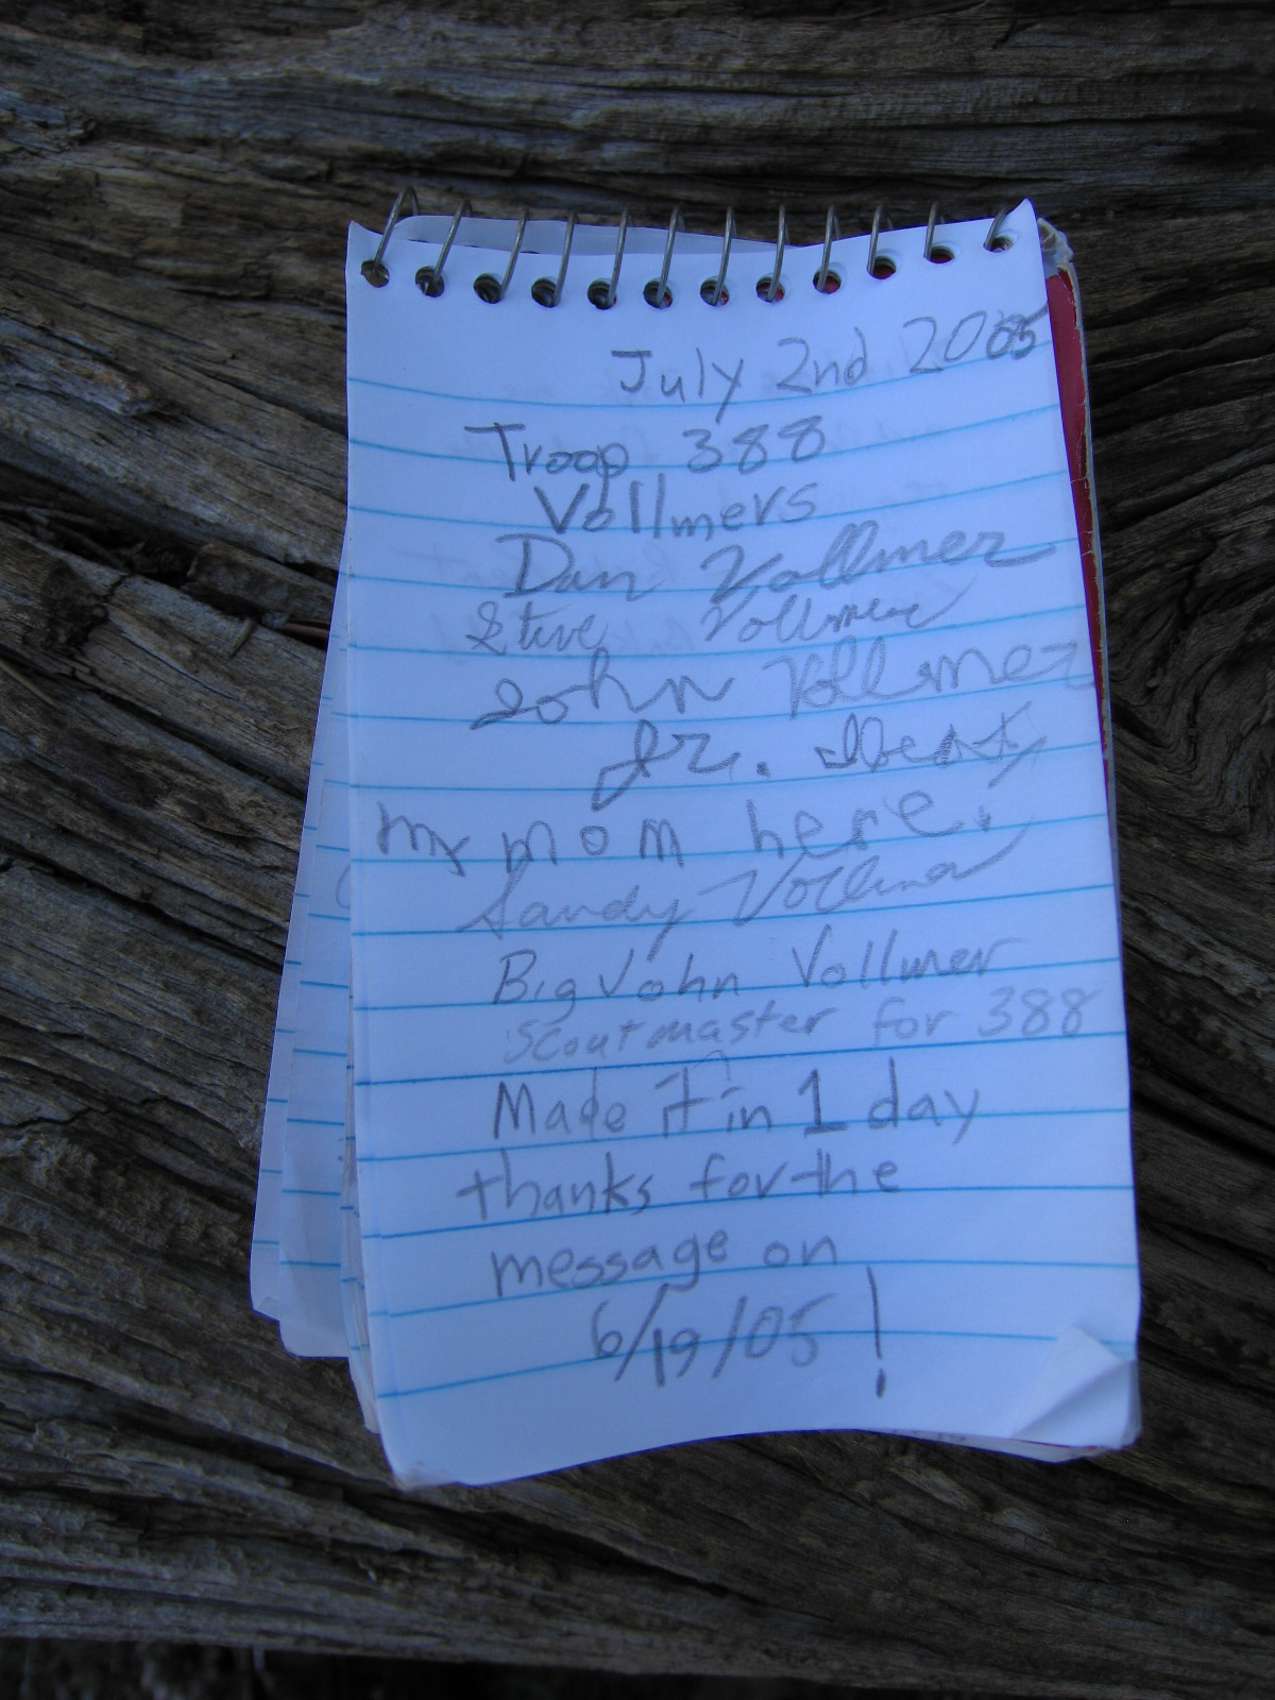 July 2nd 2005
Troop 388
Vollmers
Dan Vollmer
Steve Vollmer
John Vollmer
Jr. Beat
my mom here!
Sandy Vollmer
Big John Vollmer
Scoutmaster for 388
Made it in 1 day
thanks for the
message on
6/19/05!